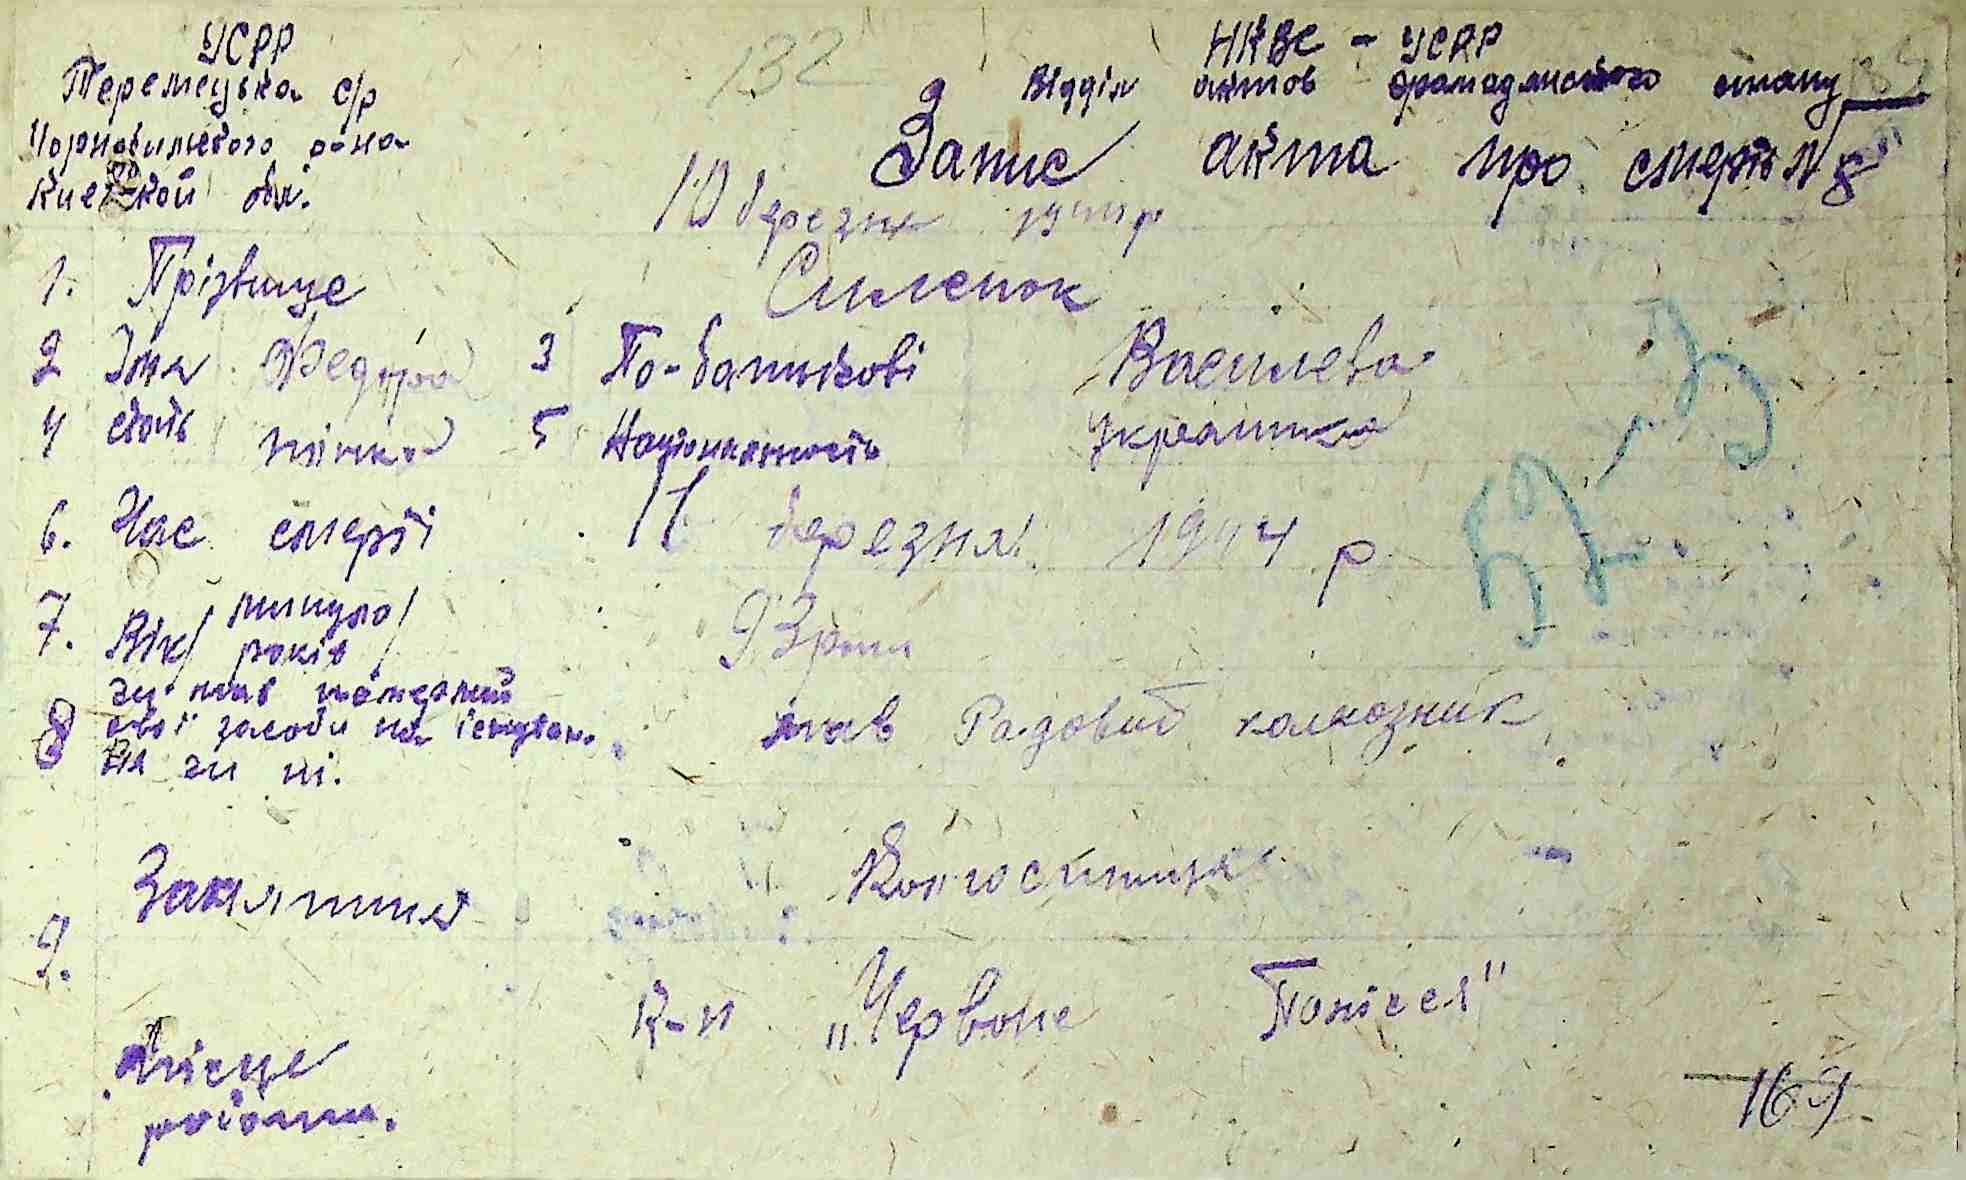 УСРР
Теремецька с/р
Чорнобильского района
Киевской обл.
132
НКВС - УСРР
Відділ актов громадянского стану
Запис акта про смерть № 8
10 березня 1944 р
1. Прізвище Силенок
2 Імя Федора 3 По-батькові Василева
4 стать жінка 5 Національность Украинка
6. Час смерті 11 березня 1944 р
7. Вік/ минуло років / 93 роки
8 чи мав померлий свої засоби на існування чи ні. мав Радовий колхозник
9. Заняття
К-п „Червоне Полісся"
Місце роботи.
169